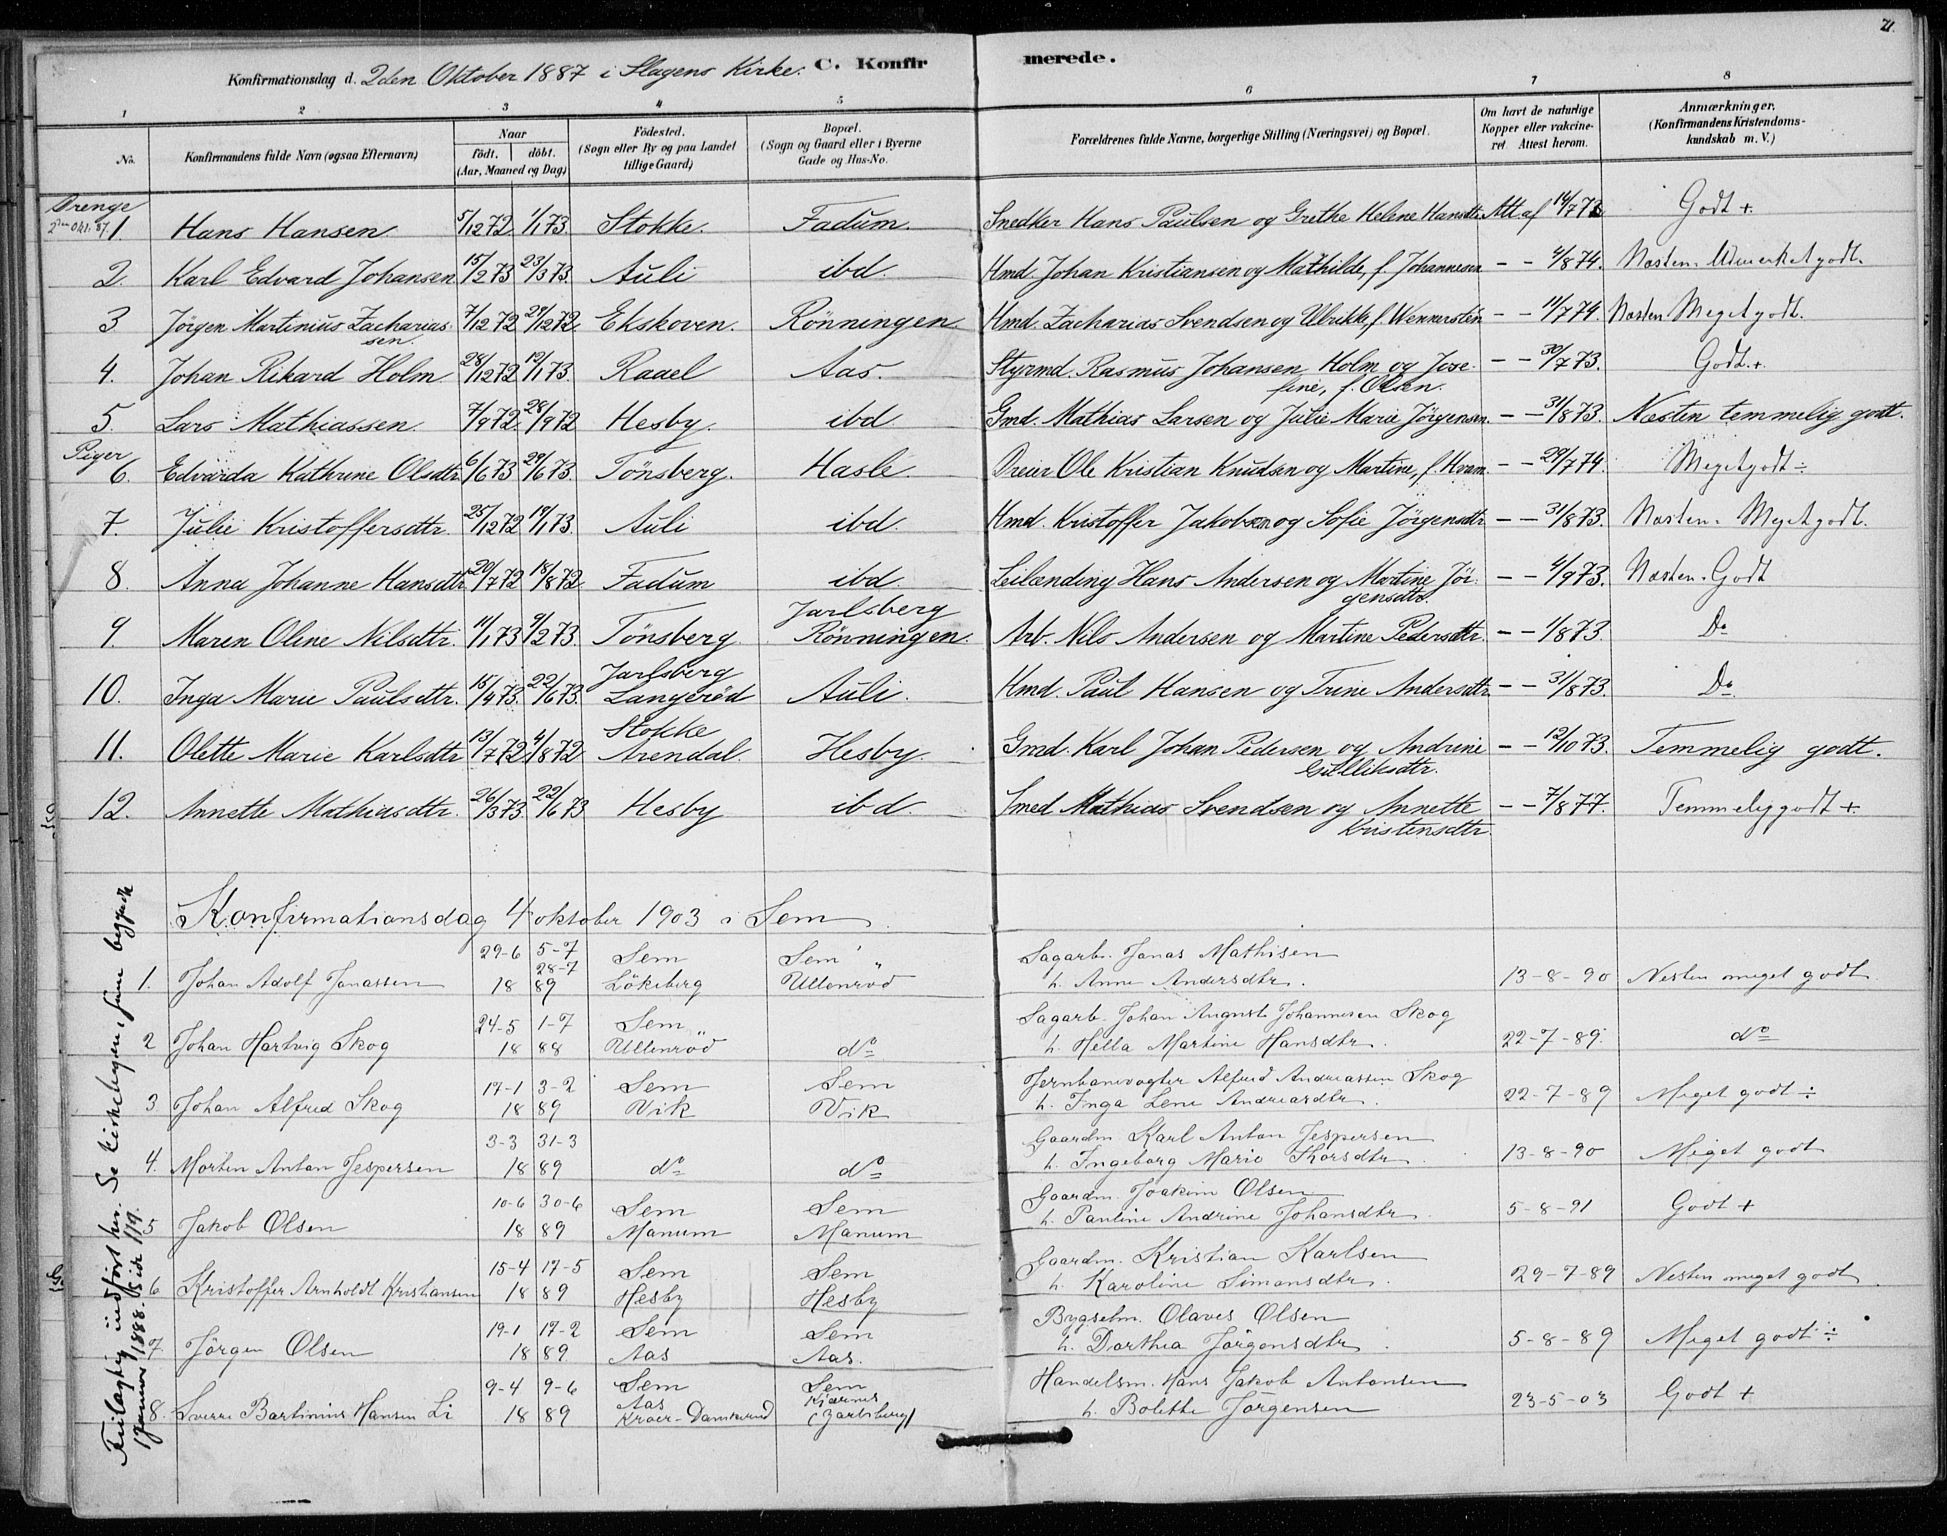 71.
Konfirmationsdag d. 2den Oktober 1887 i Slagens Kirke. C. Konfirmerede.
1 2 3 4 5 6 7 8
No. Konfirmandens fulde Navn (ogsaa Efternavn) Naar født. døbt. (Aar, Maaned og Dag) Fødested. (Sogn eller By og paa Landet tillige Gaard) Bopæl. (Sogn og Gaard eller i Byerne Gade og Hus-No. Forældrenes fulde Navne, borgerlige Stilling (Næringsvei) og Bopæl. Om havt de naturlige Kopper eller vakcineret. Attest herom. Anmærkninger. (Konfirmandens Kristendomskundskab m. V.)
Drenge
2den Okt. 87. 1. Hans Hansen 5/12 72 1/1 73. Stokke. Fadum. Snedker Hans Paulsen og Grethe Helene Hansdtr. Att af 14/7 73 Godt +.
2. Karl Edvard Johansen 15/2 73 23/3 73. Auli ibd. Hmd. Johan Kristiansen og Mathilde, f. Johannesen — — 4/8 74. Næsten Udmerket godt.
3 Jørgen Martinius Zachariassen. 7/12 72 29/12 72 Ekskoven. Rönningen Hmd. Zacharias Svendsen og Ulrikke, f. Wennerstén — — 11/7 74. Næsten Meget godt.
4. Johan Rikard Holm 28/12 72 12/1 73. Raael Aas. Styrmd. Rasmus Johansen Holm og Josefine, f. Olsen. — — 30/7 73. Godt +
5. Lars Mathiassen 7/9 72 28/9 72 Hesby. ibd Gmd. Mathias Larsen og Julie Marie Jørgensen. — — 31/8 73. Næsten temmelig godt.
Piger
6. Edvarda Kathrine Olsdtr. 6/6 73 29/6 73. Tønsberg. Hasle. Dreier Ole Kristian Knudsen og Martine, f. Hvam — — 29/7 74. Meget godt ÷
7. Julie Kristoffersdtr. 25/12 72 19/1 73. Auli ibd. Hmd. Kristoffer Jakobsen og Sofie Jørgensdtr — — 31/8 73. Næsten Meget godt.
8. Anna Johanne Hansdtr. 20/7 72 18/8 72 Fadum ibd. Leilænding Hans Andersen og Martine Jørgensdtr. — — 4/9 73. Næsten Godt
9. Maren Oline Nilsdtr. 11/1 73 9/2 73. Tønsberg Jarlsberg Rönningen. Arb. Nils Andersen og Martine Pedersdtr. — — 1/8 73. Do
10. Inga Marie Paulsdtr. 15/4 73. 22/6 73. Jarlsberg Langerød Auli. Hmd. Paul Hansen og Trine Andersdtr. — — 31/8 73. Do
11. Olette Marie Karlsdtr 13/7 72 4/8 72 Stokke Arendal. Hesby. Gmd. Karl Johan Pedersen og Andrine Gulliksdtr. — — 12/10 73. Temmelig godt.
12. Annette Mathiasdtr. 26/3 73. 22/6 73 Hesby ibd. Smed Mathias Svendsen og Annette Kristensdtr. — — 7/8 77. Temmelig godt +
Konfirmationsdag 4 oktober 1903 i Sem
1. Johan Adolf Jonassen 29-6 5-7 28-7 18 89 Sem Lökeberg Sem Ullenrød Sagarb. Jonas Mathisen h. Anne Andersdtr. 13-8-90 Nesten meget godt
2 Johan Hartvig Skog 24-5 1-7 18 88 Sem Ullenrød do Sagarb. Johan August Johannesen Skog h. Hella Martine Hansdtr. 22-7-89. do
3 Johan Alfred Skog 17-1 3-2 18 89 Sem Vik Sem Vik Jernbanevogter Alfred Andreassen Skog h. Inga Lene Andreasdtr. 22-7-89 Meget godt ÷
4. Morten Anton Jespersen 3-3 31-3 18 89 do do Gaardm. Karl Anton Jespersen h. Ingeborg Marie Thorsdtr. 13-8-90 Meget godt
5 Jakob Olsen 10-6 30-6 18 89 Sem Manum Sem Manum Gaardm. Joakim Olsen h. Pauline Andrine Johansdtr. 5-8-91 Godt +
6 Kristoffer Arnholdt Kristiansen 15-4 17-5 18 89 Sem Hesby Sem Hesby Gaardm. Kristian Karlsen h. Karoline Simonsdtr. 29-7-89 Nesten meget godt
7 Jörgen Olsen 19-1 17-2 18 89 Sem Aas Sem Aas. Bygselm. Olaves Olsen h. Dorthea Jörgensdtr. 5-8-89 Meget godt ÷
8. Sverre Bartinius Hansen Li 9-4 9-6 18 89 Sem Aas Sem Kjærnes (Jarlsberg) Handelsm. Hans Jakob Antonsen h. Bolette Jörgensen 23-5-03 Godt +
Feilagtig indført her. Se kirkebogen, som begynder
1 Januar 1888. Side 119.